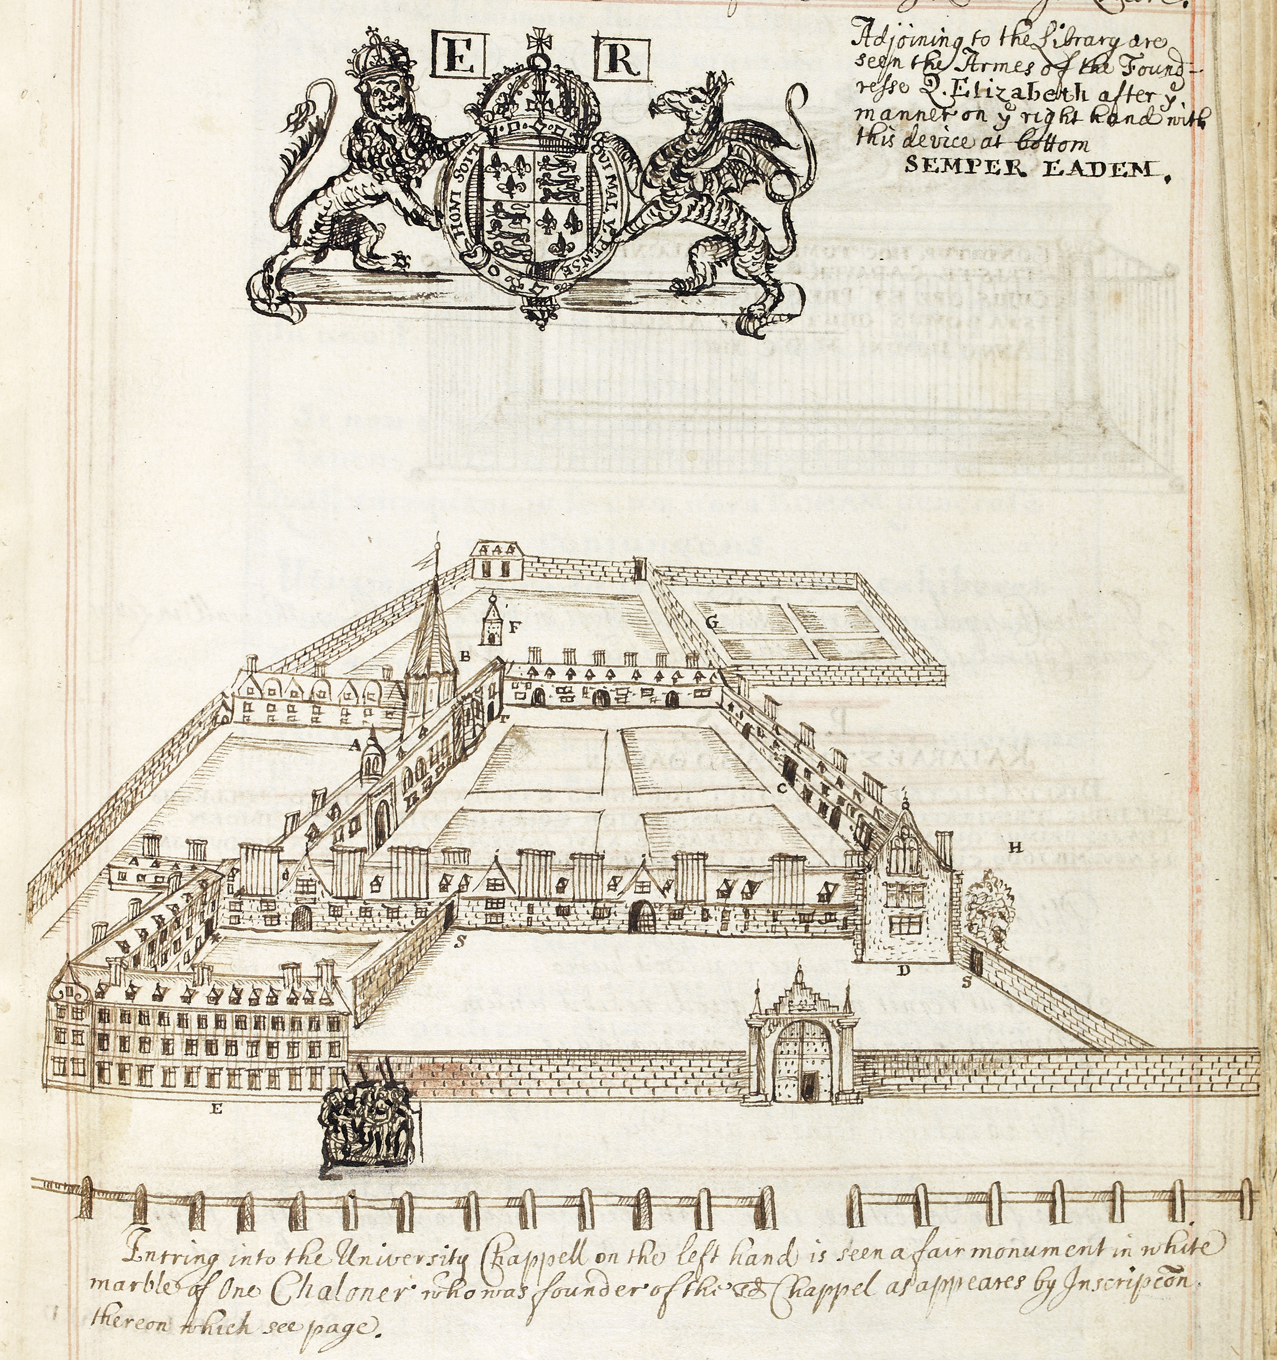 E R
HONI SOIT QUI MAL Y PENSE
Adjoining to the Library are
seen the Armes of the Found-
resse Q. Elizabeth after yͤ
manner on yͤ right hand with
this device at bottom
SEMPER EADEM.
F
G
B
A
C
H
S
D
S
E
Entring into the University Chappell on the left hand is seen a fair monument in white
marble of One Chaloner who was founder of the Chappel as appeares by Inscripcõn
thereon which see page.